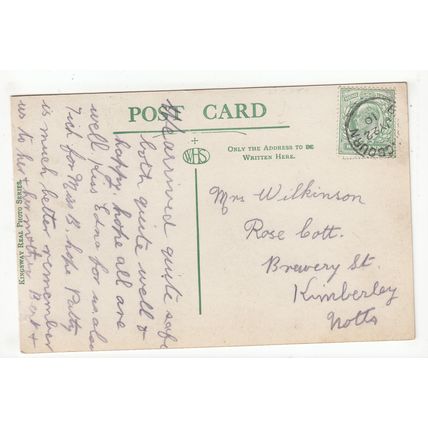 POST CARD
WHS
ONLY THE ADDRESS TO BE
WRITTEN HERE.
KINGSWAY REAL PHOTO SERIES.
We arrived quite safe
both quite well &
happy, hope all are
well kiss Edna for us also
Fish for Miss B. hope Patty
is much better remember
us to her & Bert &
Mrs Wilkinson
Rose Cott.
Brewery St.
Kimberley
Notts